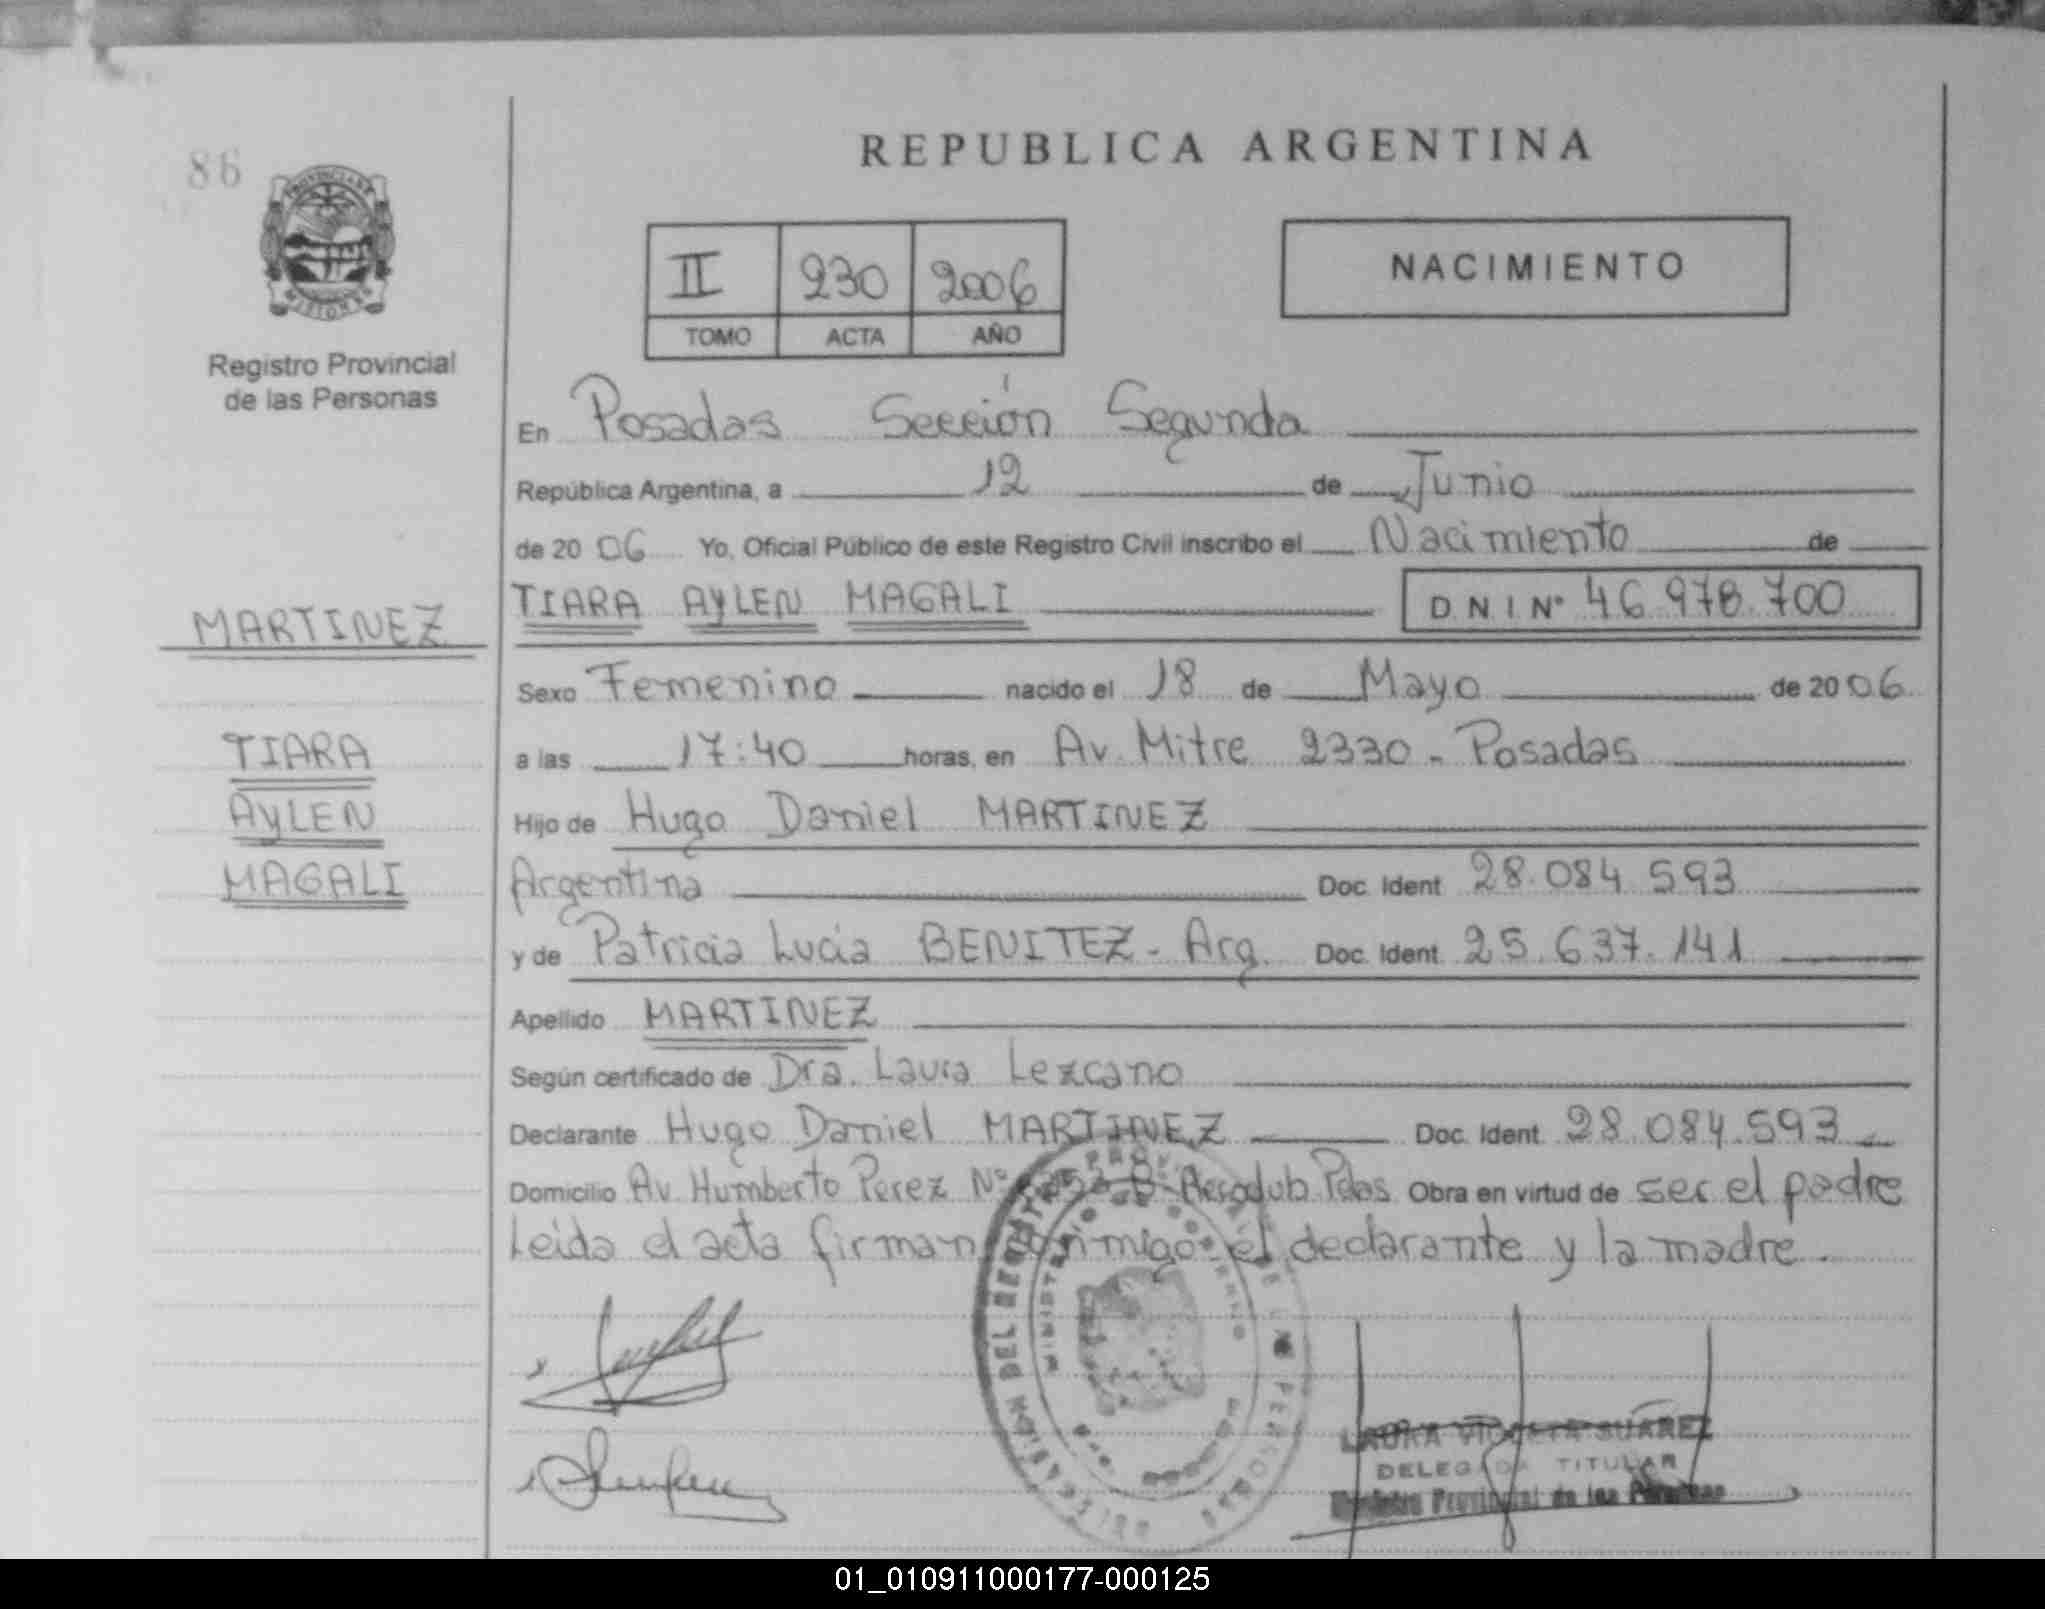 REPUBLICA ARGENTINA
86
PROVINCIA DE
MISIONES
Registro Provincial
de las Personas
II 230 2006
TOMO ACTA AÑO
NACIMIENTO
En Posadas Sección Segunda
República Argentina, a 12 de Junio
de 20 06 Yo, Oficial Público de este Registro Civil inscribo el Nacimiento de
TIARA AYLEN MAGALI D.N.I Nº 46.978.700
MARTINEZ
Sexo Femenino nacido el 18 de Mayo de 20 06
TIARA
AYLEN
MAGALI
a las 17:40 horas, en Av. Mitre 2330 - Posadas
Hijo de Hugo Daniel MARTINEZ
Argentina Doc. Ident. 28.084.593
y de Patricia Lucia BENITEZ - Arg. Doc. Ident. 25.637.141
Apellido MARTINEZ
Según certificado de Dra. Laura Lezcano
Declarante Hugo Daniel MARTINEZ Doc. Ident. 28.084.593
Domicilio Av Humberto Perez Nº Aeroclub Pdas Obra en virtud de ser el padre
Leida el acta firman conmigo el declarante y la madre.
MINISTERIO DE GOBIERNO
LAURA SUAREZ
DELEGADA TITULAR
Registro Provincial de las Personas
01_010911000177-000125